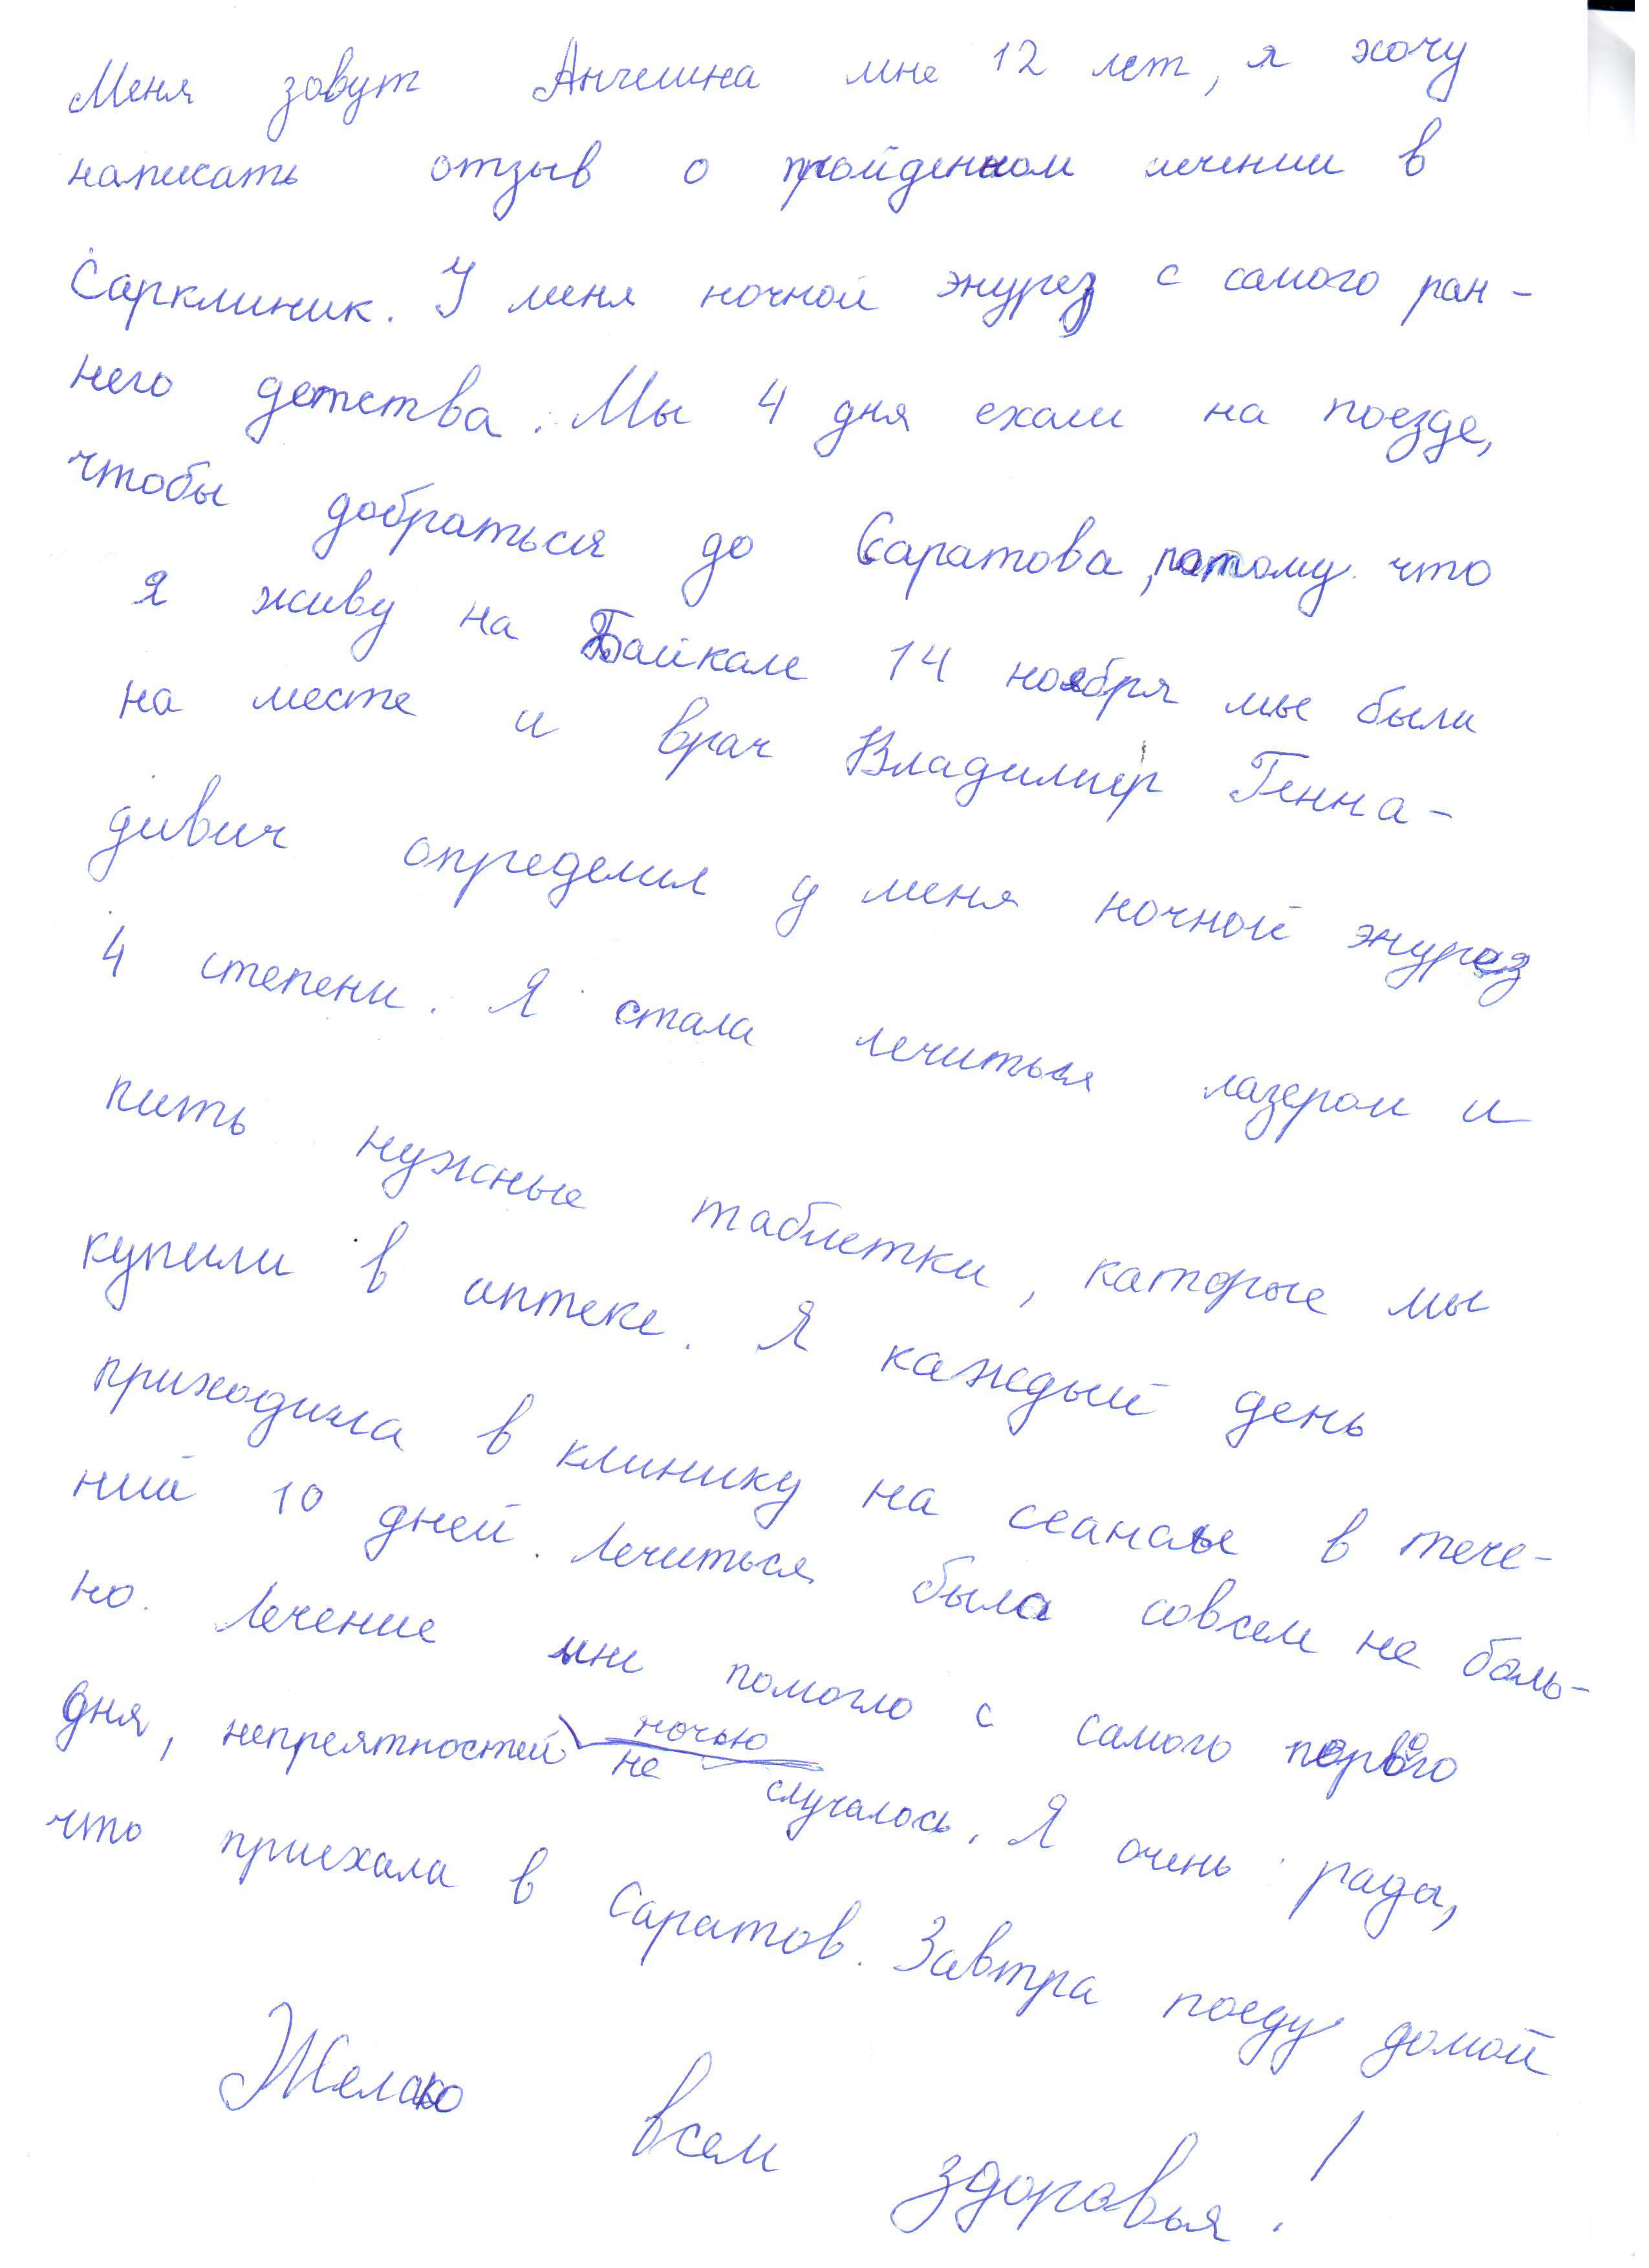 Меня зовут Ангелина мне 12 лет, я хочу
написать отзыв о пройденном лечении в
Сарклиник. У меня ночной энурез с самого ран-
него детства. Мы 4 дня ехали на поезде,
чтобы добраться до Саратова, потому что
я живу на Байкале 14 ноября мы были
на месте и врач Владимир Генна-
дивич определил у меня ночной энурез
4 степени. Я стала лечиться лазером и
пить нужные таблетки, каторые мы
купили в аптеке. Я каждый день
приходила в клинику на сеансы в тече-
ний 10 дней. Лечиться была совсем не боль-
но. Лечение мне помогло с самого первого
дня, непреятностей ночью не случалось. Я очень рада,
что приехала в Саратов. Завтра поеду домой
Желаю всем здоровья!